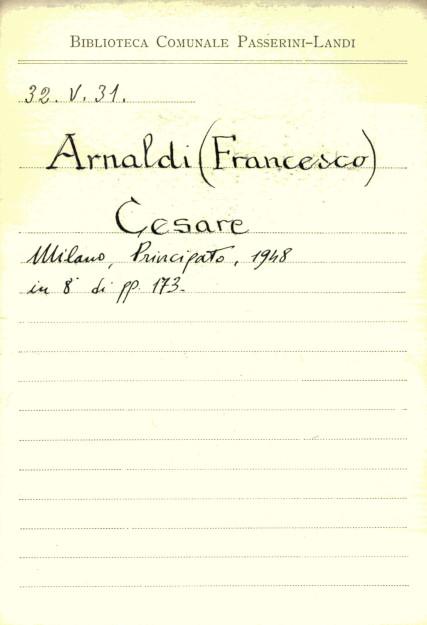 BIBLIOTECA COMUNALE PASSERINI-LANDI
32. V. 31.
Arnaldi (Francesco)
Cesare
Milano, Principato, 1948
in 8° di pp. 173.